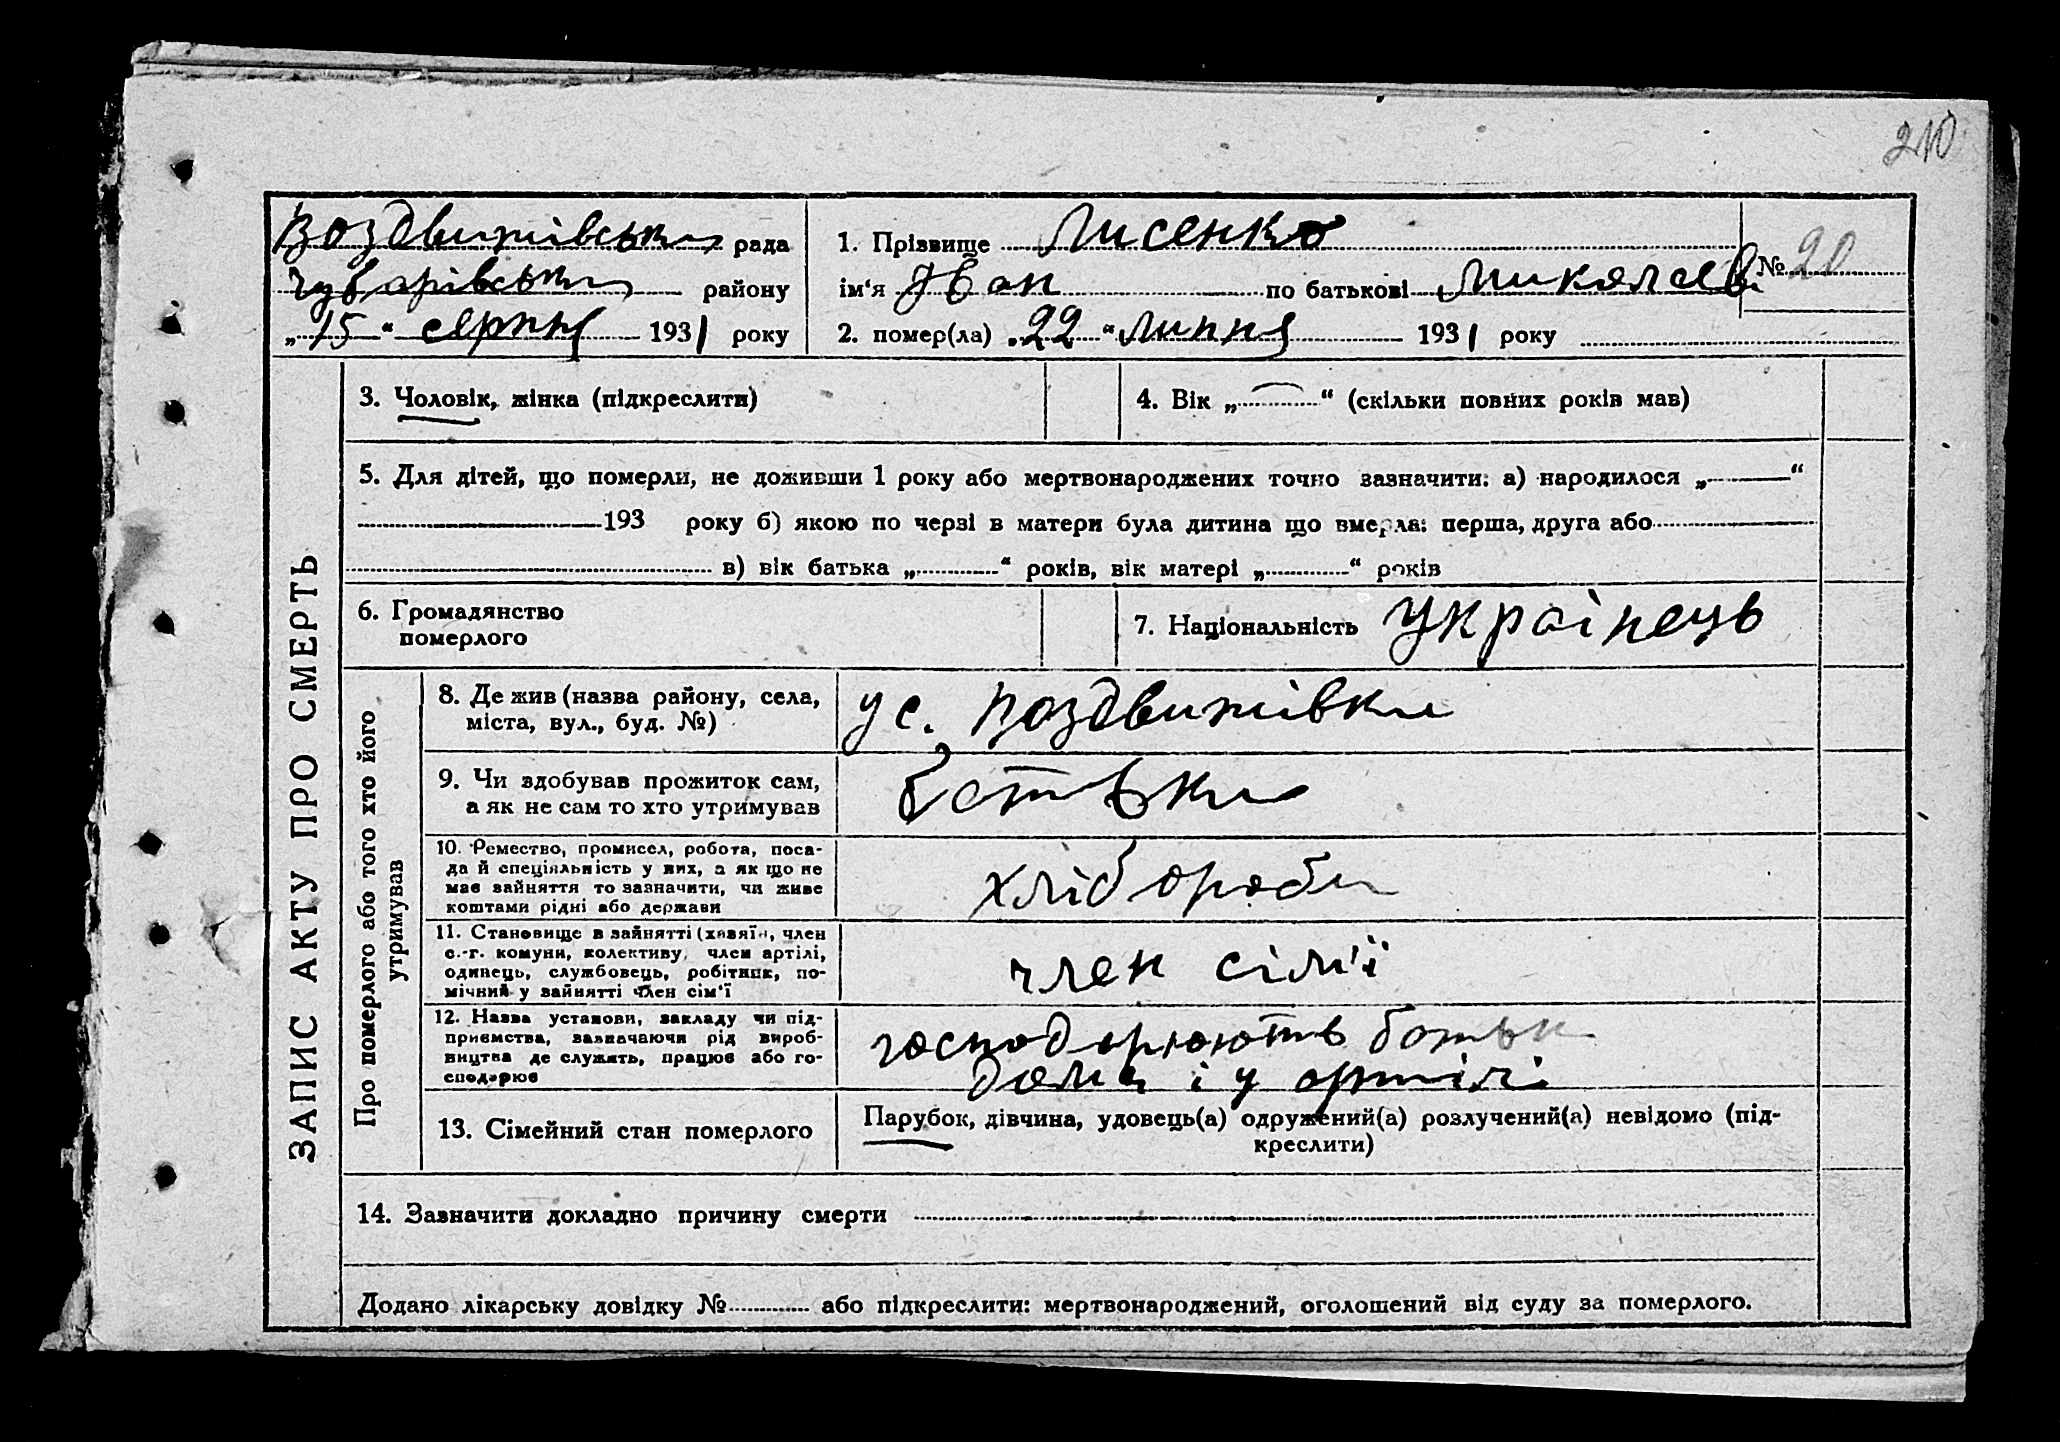 210
Воздвижівська рада
Чубарівського району
„15“ серпня 1931 року
1. Прізвище Лисенко
ім‘я Іван по батькові Миколаєв
№ 20
2. помер(ла) „22“ липня 1931 року
ЗАПИС АКТУ ПРО СМЕРТЬ
3. Чоловік, жінка (підкреслити)
4. Вік „—“ (скільки повних років мав)
5. Для дітей, що померли, не доживши 1 року або мертвонароджених точно зазначити: а) народилося „—“
193 року б) якою по черзі в матери була дитина що вмерла: перша, друга або
в) вік батька „ “ років, вік матері „ “ років
6. Громадянство
померлого
7. Національність Українець
Про померлого або того хто його
утримував
8. Де жив (назва району, села,
міста, вул., буд. №)
у с. Воздвижівка
9. Чи здобував прожиток сам,
а як не сам то хто утримував
батьки
10. Ремество, промисел, робота, поса-
да й спеціяльність у них, а як що не
має зайняття то зазначити, чи живе
коштами рідні або держави
хлібороби
11. Становище в зайнятті (хазяїн, член
с.-г. комуни, колективу, член артілі,
одинець, службовець, робітник, по-
мічний у зайнятті член сім‘ї
член сімї
12. Назва установи, закладу чи під-
приємства, зазначаючи рід вироб-
ництва де служать, працює або го-
сподарює
господарюють батьки
дома і у артілі
13. Сімейний стан померлого
Парубок, дівчина, удовець(а) одружений(а) розлучений(а) невідомо (під-
креслити)
14. Зазначити докладно причину смерти
Додано лікарську довідку № або підкреслити: мертвонароджений, оголошений від суду за померлого.